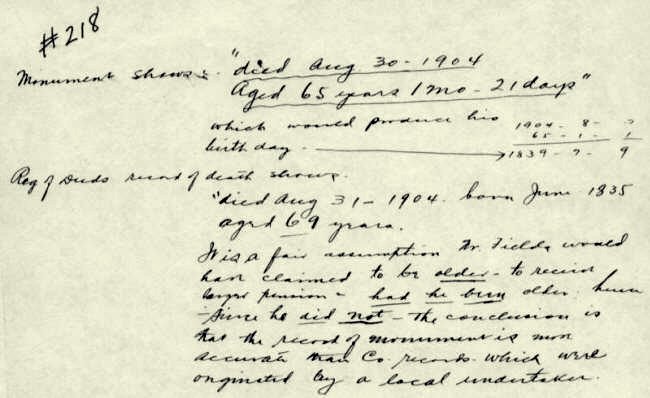 #218
Monument shows:- "died Aug 30 - 1904
Aged 65 years 1 mo - 21 days"
which would produce his 1904 - 8 -
birth day - 65 - 1 -
1839 - 7 - 9
Reg of Deeds record of death shows.
"died Aug 31 - 1904. born June 1835
aged 69 years.
It is a fair assumption Mr. Fields would
have claimed to be older - to receive
larger pension - had he been older; hence
- since he did not - the conclusion is
that the record of monument is more
accurate than Co. records which were
originated by a local undertaker.